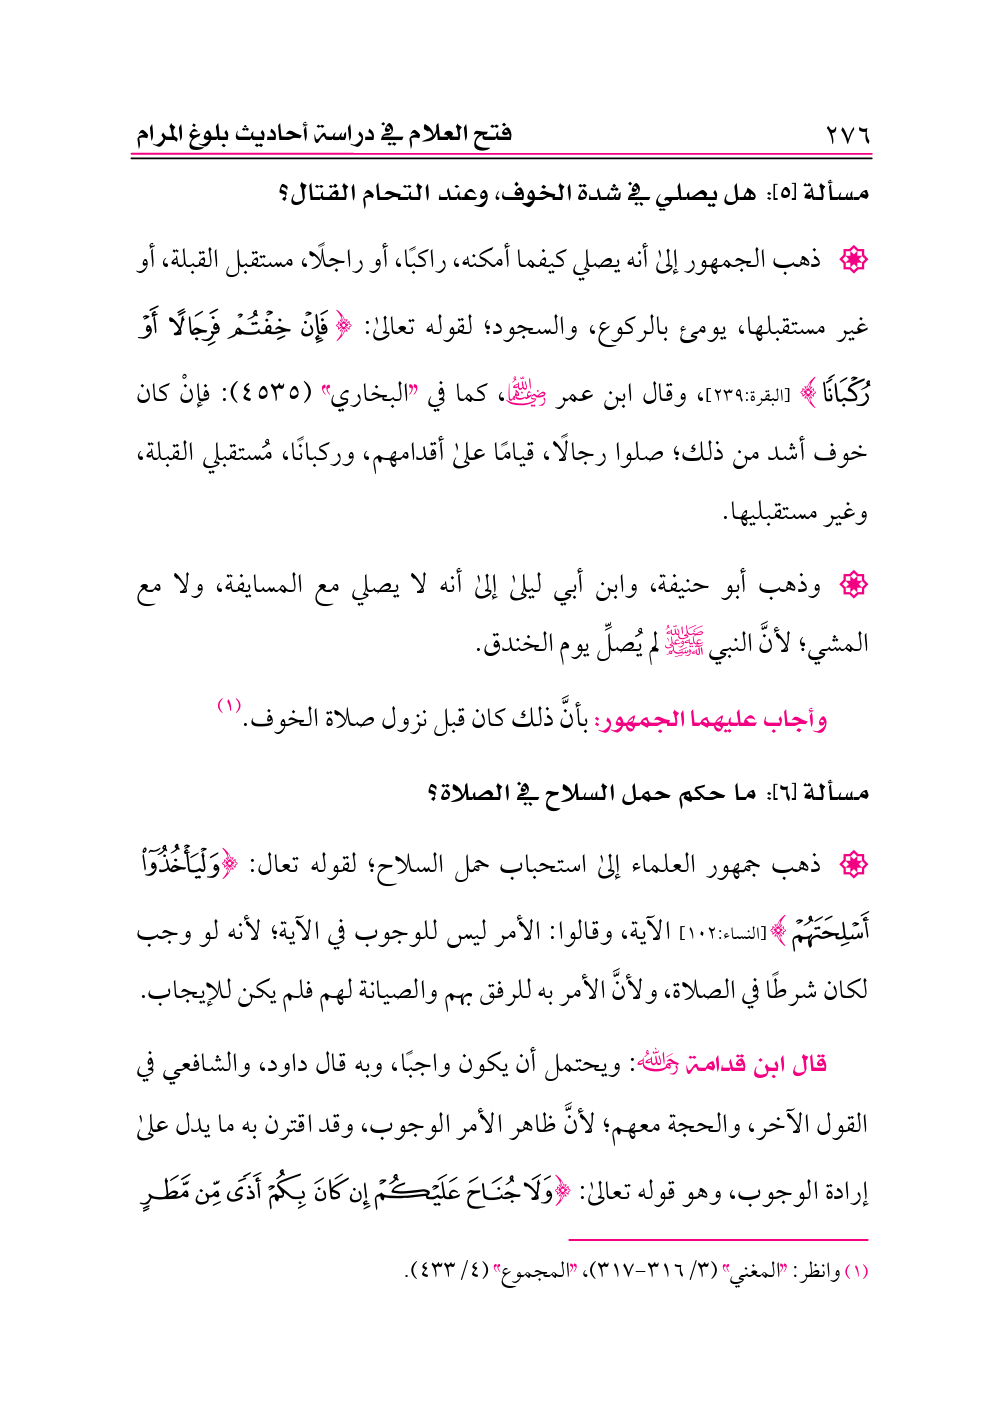 ٢٧٦ فتح العلام في دراسة أحاديث بلوغ المرام
مسألة [٥]: هل يصلي في شدة الخوف، وعند التحام القتال؟
ذهب الجمهور إلىٰ أنه يصلي كيفما أمكنه، راكبًا، أو راجلًا، مستقبل القبلة، أو
غير مستقبلها، يومئ بالركوع، والسجود؛ لقوله تعالىٰ: ﴿فَإِنۡ خِفۡتُمۡ فَرِجَالًا أَوۡ
رُكۡبَانٗا﴾ [البقرة:٢٣٩]، وقال ابن عمر رضي الله عنهما، كما في "البخاري" (٤٥٣٥): فإنْ كان
خوف أشد من ذلك؛ صلوا رجالًا، قيامًا علىٰ أقدامهم، وركبانًا، مُستقبلي القبلة،
وغير مستقبليها.
وذهب أبو حنيفة، وابن أبي ليلىٰ إلىٰ أنه لا يصلي مع المسايفة، ولا مع
المشي؛ لأنَّ النبي ﷺ لم يُصلِّ يوم الخندق.
وأجاب عليهما الجمهور: بأنَّ ذلك كان قبل نزول صلاة الخوف.(١)
مسألة [٦]: ما حكم حمل السلاح في الصلاة؟
ذهب جمهور العلماء إلىٰ استحباب حمل السلاح؛ لقوله تعال: ﴿وَلۡيَأۡخُذُوٓاْ
أَسۡلِحَتَهُمۡ﴾ [النساء:١٠٢] الآية، وقالوا: الأمر ليس للوجوب في الآية؛ لأنه لو وجب
لكان شرطًا في الصلاة، ولأنَّ الأمر به للرفق بهم والصيانة لهم فلم يكن للإيجاب.
قال ابن قدامة رحمه الله: ويحتمل أن يكون واجبًا، وبه قال داود، والشافعي في
القول الآخر، والحجة معهم؛ لأنَّ ظاهر الأمر الوجوب، وقد اقترن به ما يدل علىٰ
إرادة الوجوب، وهو قوله تعالىٰ: ﴿وَلَا جُنَاحَ عَلَيۡكُمۡ إِن كَانَ بِكُمۡ أَذٗى مِّن مَّطَرٍ
(١) وانظر: "المغني" (٣/ ٣١٦-٣١٧)، "المجموع" (٤/ ٤٣٣).